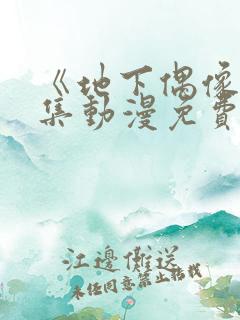 《地下偶像
集動漫免費
江邊儺送
未经同意禁止转载